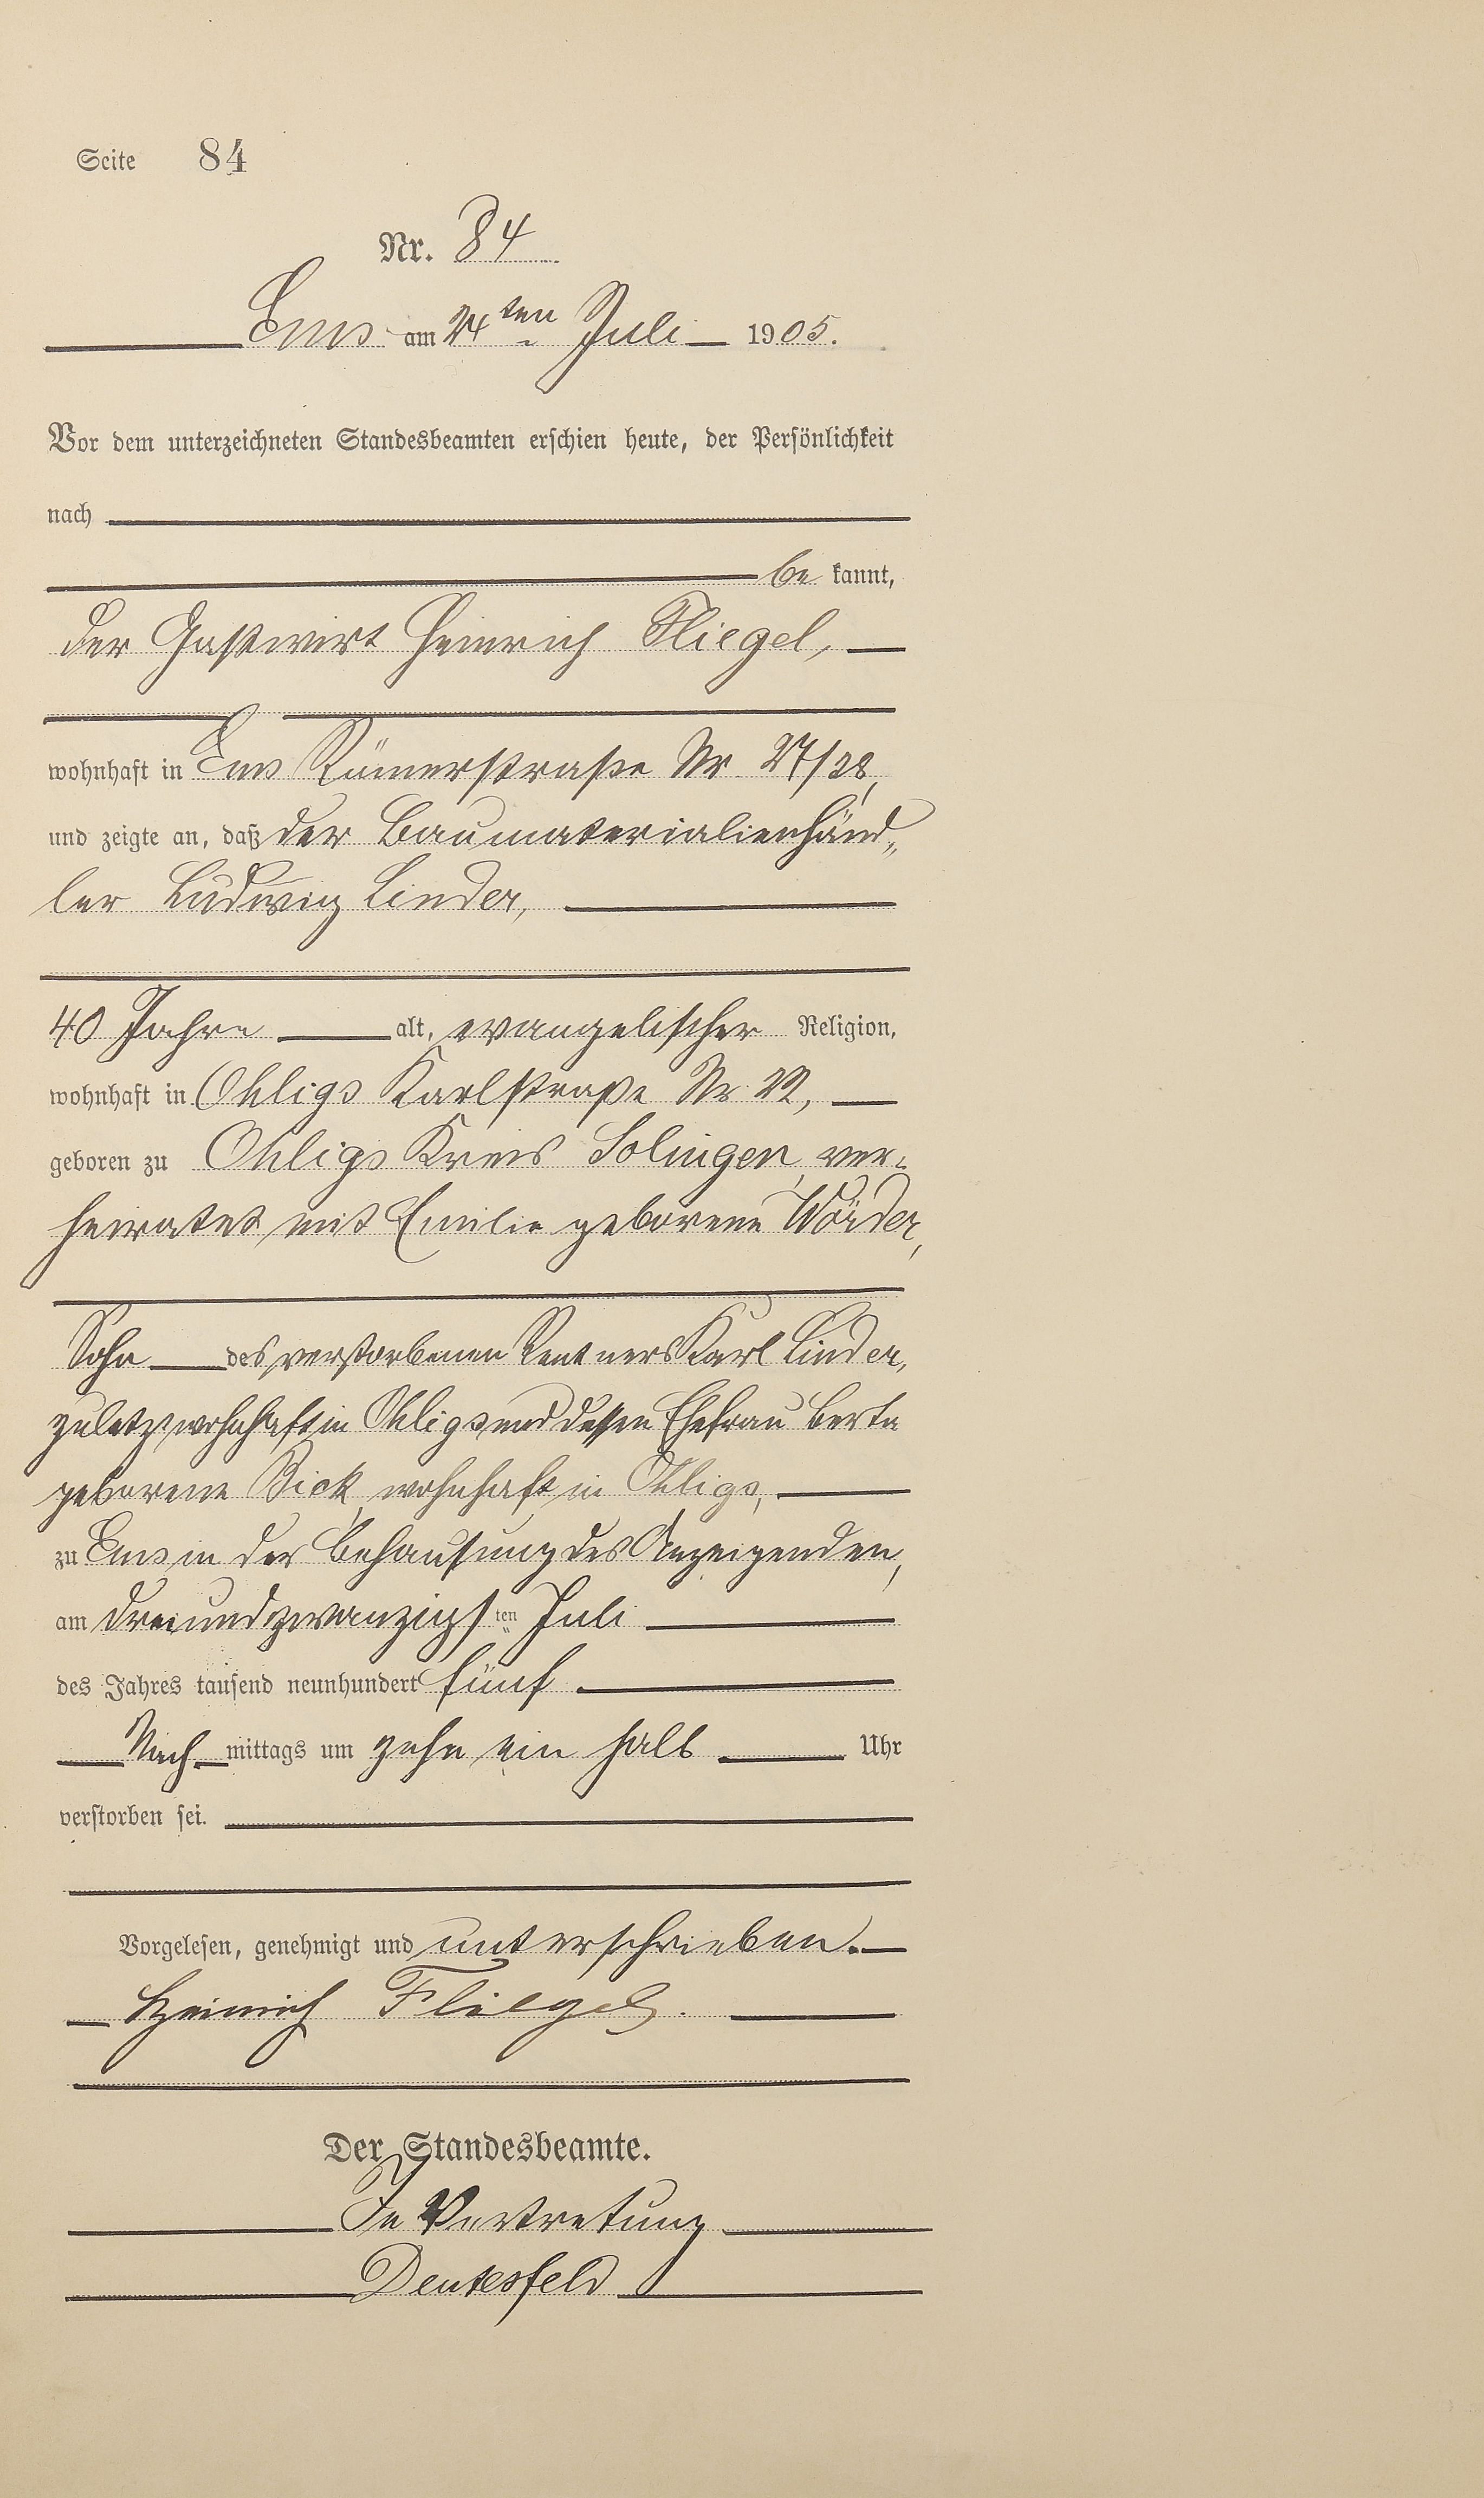 Seite 84
Nr. 84
Ems am 24ten Juli 1905.
Vor dem unterzeichneten Standesbeamten erschien heute, der Persönlichkeit
nach
be kannt,
der Gastwirt Heinrich Fliegel,
wohnhaft in Ems Römerstraße Nr. 27/28,
und zeigte an, daß der Baumaterialienhänd„
ler Ludwig Linder,
40 Jahre alt, evangelischer Religion,
wohnhaft in Ohligs Karlstraße Nr.
geboren zu Ohligs Kreis Solingen, ver-
heiratet mit Emilie geborene
Sohn des verstorbenen Rentners Karl Linder,
zuletzt wohnhaft in Ohligs und dessen Ehefrau Berta
geborene Bick, wohnhaft in Ohligs,
zu Ems in der Behausung des Anzeigenden,
am dreiundzwanzigsten Juli
des Jahres tausend neunhundert fünf
Nach mittags um zehn ein halb Uhr
verstorben sei.
Vorgelesen, genehmigt und unterschrieben.
Heinrich Fliegel.
Der Standesbeamte.
In Vertretung
Deutesfeld